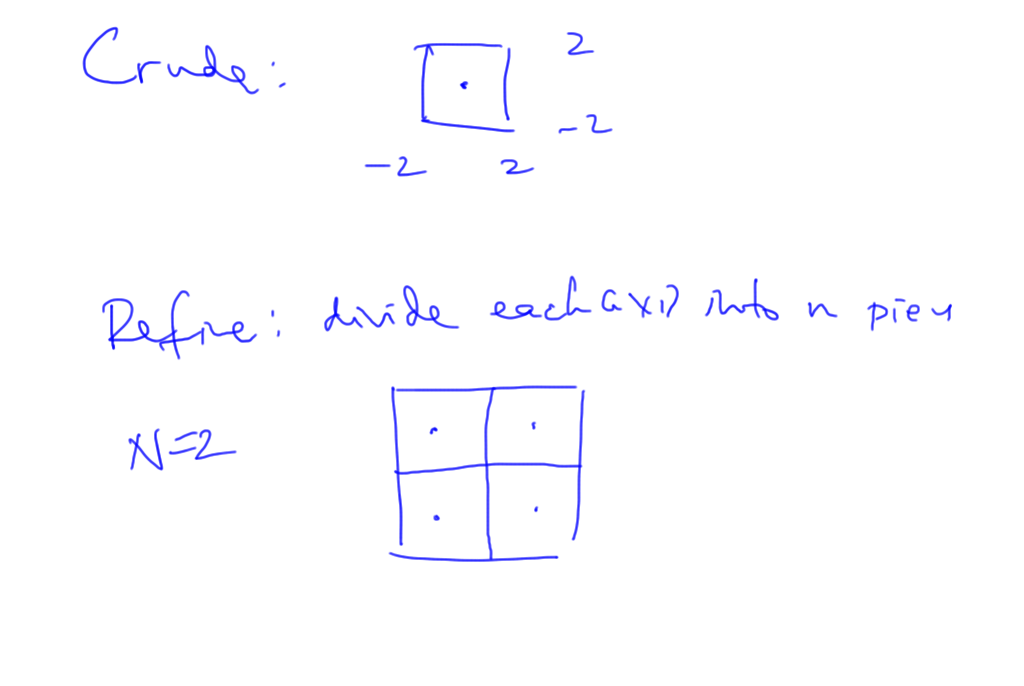 Crude:
2
-2
-2 2
Refine: divide each axis into n pieces
N=2